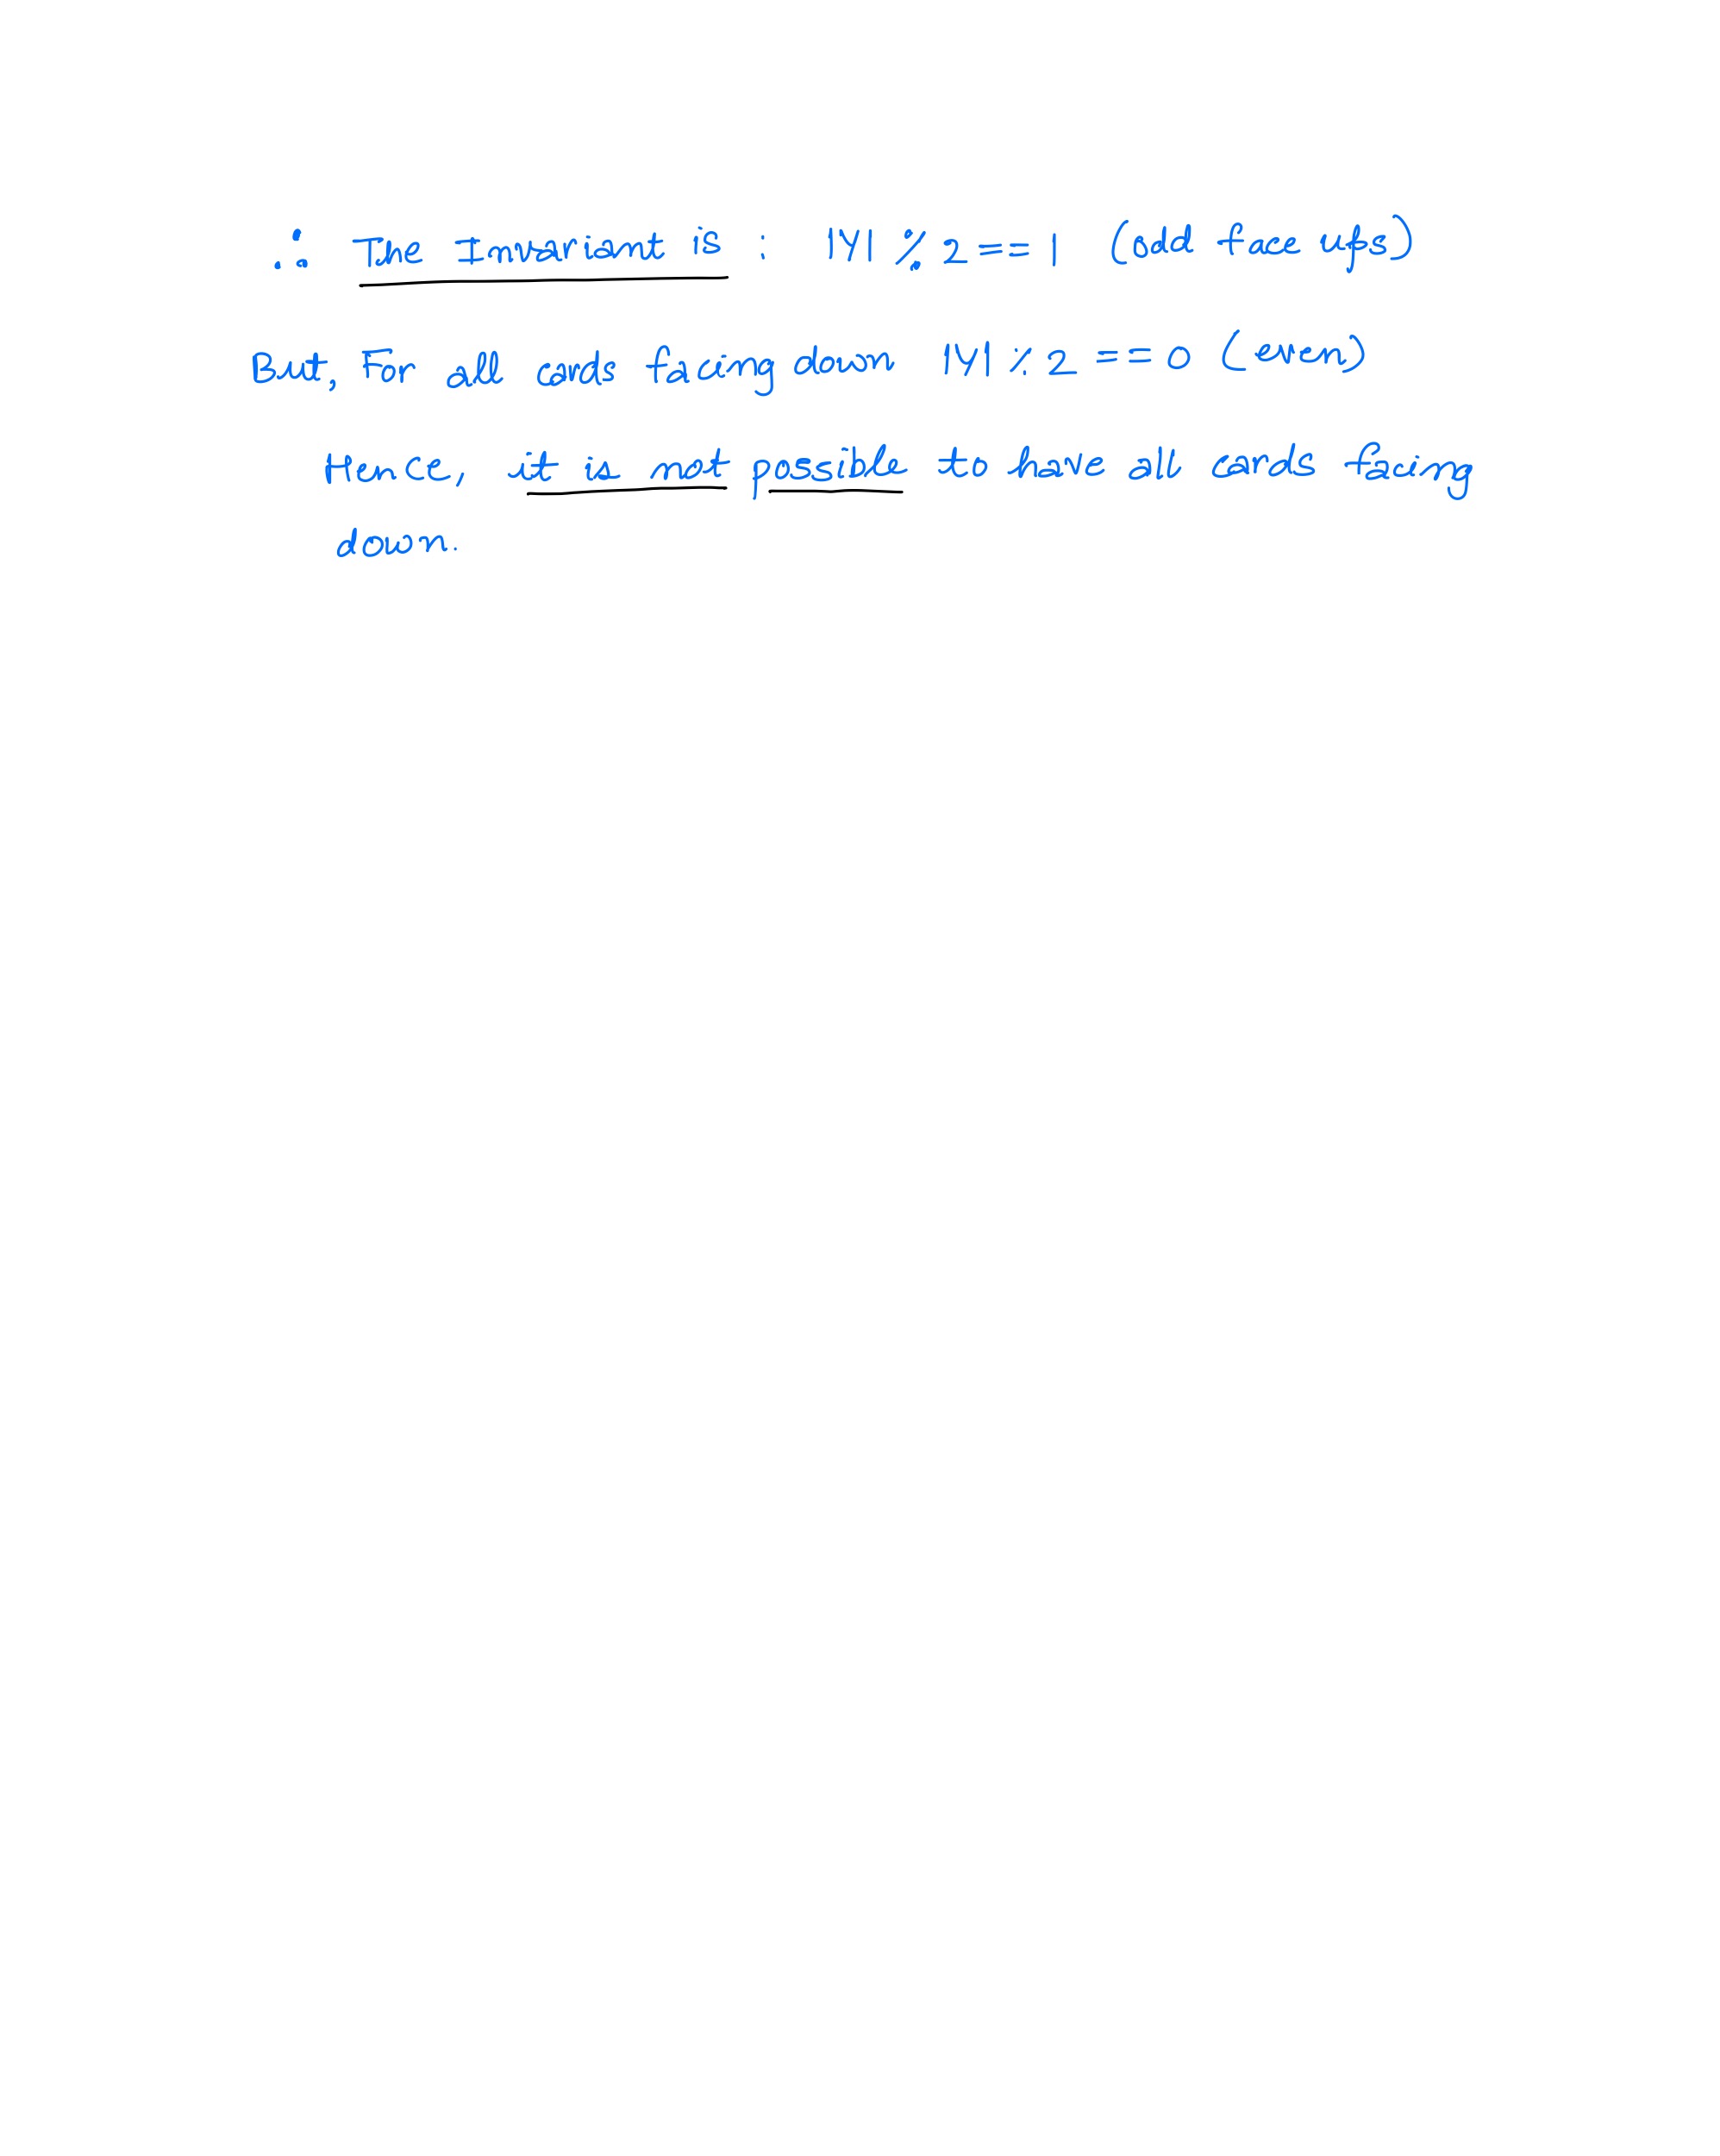 ∴ The Invariant is : |Y| % 2 == 1 (odd face ups)
But, For all cards facing down |Y| % 2 == 0 (even)
Hence, it is not possible to have all cards facing
down.